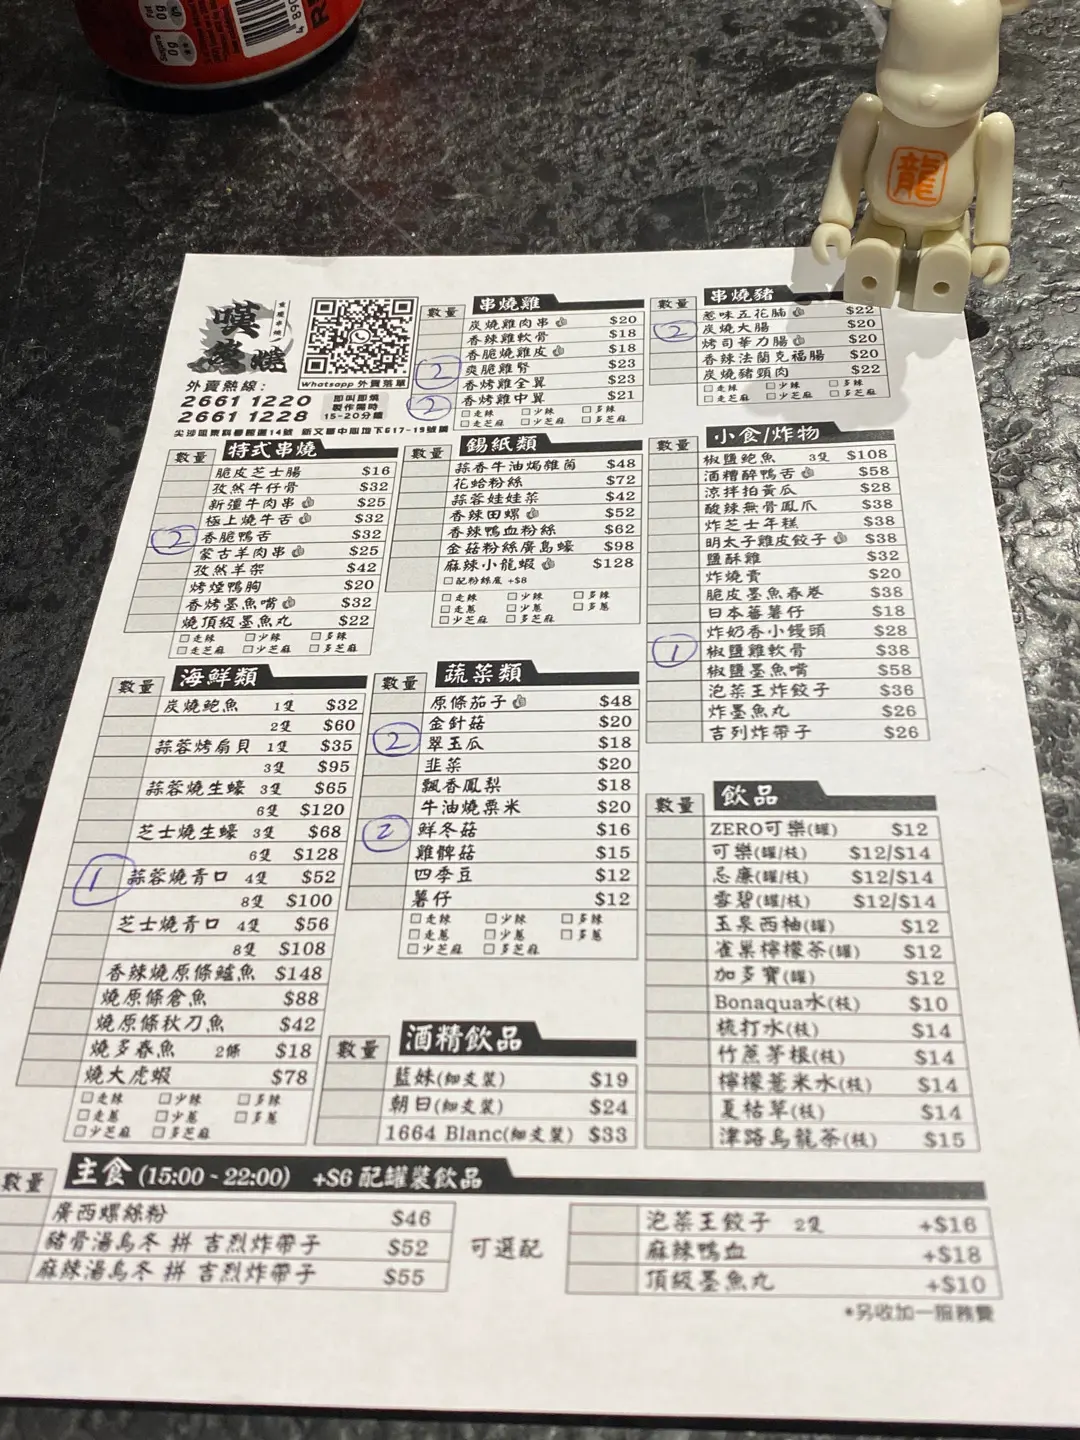 Fat 0g 0%
Sugars 0g
4 890
龍
嘆串燒
Whatsapp 外賣落單
外賣熱線：
2661 1220
2661 1228
即叫即燒
製作需時
15-20分鐘
數量 串燒雞
炭燒雞肉串 $20
香辣雞軟骨 $18
香脆燒雞皮 $18
② 爽脆雞腎 $23
香烤雞全翼 $23
② 香烤雞中翼 $21
走辣 少辣 多辣
走芝麻 少芝麻 多芝麻
數量 串燒豬
惹味五花腩 $22
② 炭燒大腸 $20
烤司華力腸 $20
香辣法蘭克福腸 $20
炭燒豬頸肉 $22
走辣 少辣 多辣
走芝麻 少芝麻 多芝麻
數量 特式串燒
脆皮芝士腸 $16
孜然牛仔骨 $32
新疆牛肉串 $25
極上燒牛舌 $32
② 香脆鴨舌 $32
蒙古羊肉串 $25
孜然羊架 $42
烤煙鴨胸 $20
香烤墨魚嘴 $32
燒頂級墨魚丸 $22
走辣 少辣 多辣
走芝麻 少芝麻 多芝麻
數量 錫紙類
蒜香牛油焗雜菌 $48
花蛤粉絲 $72
蒜蓉娃娃菜 $42
香辣田螺 $52
香辣鴨血粉絲 $62
金菇粉絲廣島蠔 $98
麻辣小龍蝦 $128
配粉絲底 +$8
走辣 少辣 多辣
走蔥 少蔥 多蔥
少芝麻 多芝麻
數量 小食/炸物
椒鹽鮑魚 3隻 $108
酒糟醉鴨舌 $58
涼拌拍黃瓜 $28
酸辣無骨鳳爪 $38
炸芝士年糕 $38
明太子雞皮餃子 $38
鹽酥雞 $32
炸燒賣 $20
脆皮墨魚春卷 $38
日本蕃薯仔 $18
炸奶香小饅頭 $28
① 椒鹽雞軟骨 $38
椒鹽墨魚嘴 $58
泡菜王炸餃子 $36
炸墨魚丸 $26
吉列炸帶子 $26
數量 海鮮類
炭燒鮑魚 1隻 $32
2隻 $60
蒜蓉烤扇貝 1隻 $35
3隻 $95
蒜蓉燒生蠔 3隻 $65
6隻 $120
芝士燒生蠔 3隻 $68
6隻 $128
① 蒜蓉燒青口 4隻 $52
8隻 $100
芝士燒青口 4隻 $56
8隻 $108
香辣燒原條鱸魚 $148
燒原條倉魚 $88
燒原條秋刀魚 $42
燒多春魚 2條 $18
燒大虎蝦 $78
走辣 少辣 多辣
走蔥 少蔥 多蔥
少芝麻 多芝麻
數量 蔬菜類
原條茄子 $48
金針菇 $20
② 翠玉瓜 $18
韭菜 $20
飄香鳳梨 $18
牛油燒粟米 $20
② 鮮冬菇 $16
雞髀菇 $15
四季豆 $12
薯仔 $12
走辣 少辣 多辣
走蔥 少蔥 多蔥
少芝麻 多芝麻
數量 飲品
ZERO可樂(罐) $12
可樂(罐/枝) $12/$14
忌廉(罐/枝) $12/$14
雪碧(罐/枝) $12/$14
玉泉西柚(罐) $12
雀巢檸檬茶(罐) $12
加多寶(罐) $12
Bonaqua水(枝) $10
梳打水(枝) $14
竹蔗茅根(枝) $14
檸檬薏米水(枝) $14
夏枯草(枝) $14
津路烏龍茶(枝) $15
數量 酒精飲品
藍妹(細支裝) $19
朝日(細支裝) $24
1664 Blanc(細支裝) $33
數量 主食 (15:00 - 22:00) +$6 配罐裝飲品
廣西螺絲粉 $46
豬骨湯烏冬 拼 吉烈炸帶子 $52
麻辣湯烏冬 拼 吉烈炸帶子 $55
可選配
泡菜王餃子 2隻 +$16
麻辣鴨血 +$18
頂級墨魚丸 +$10
*另收加一服務費